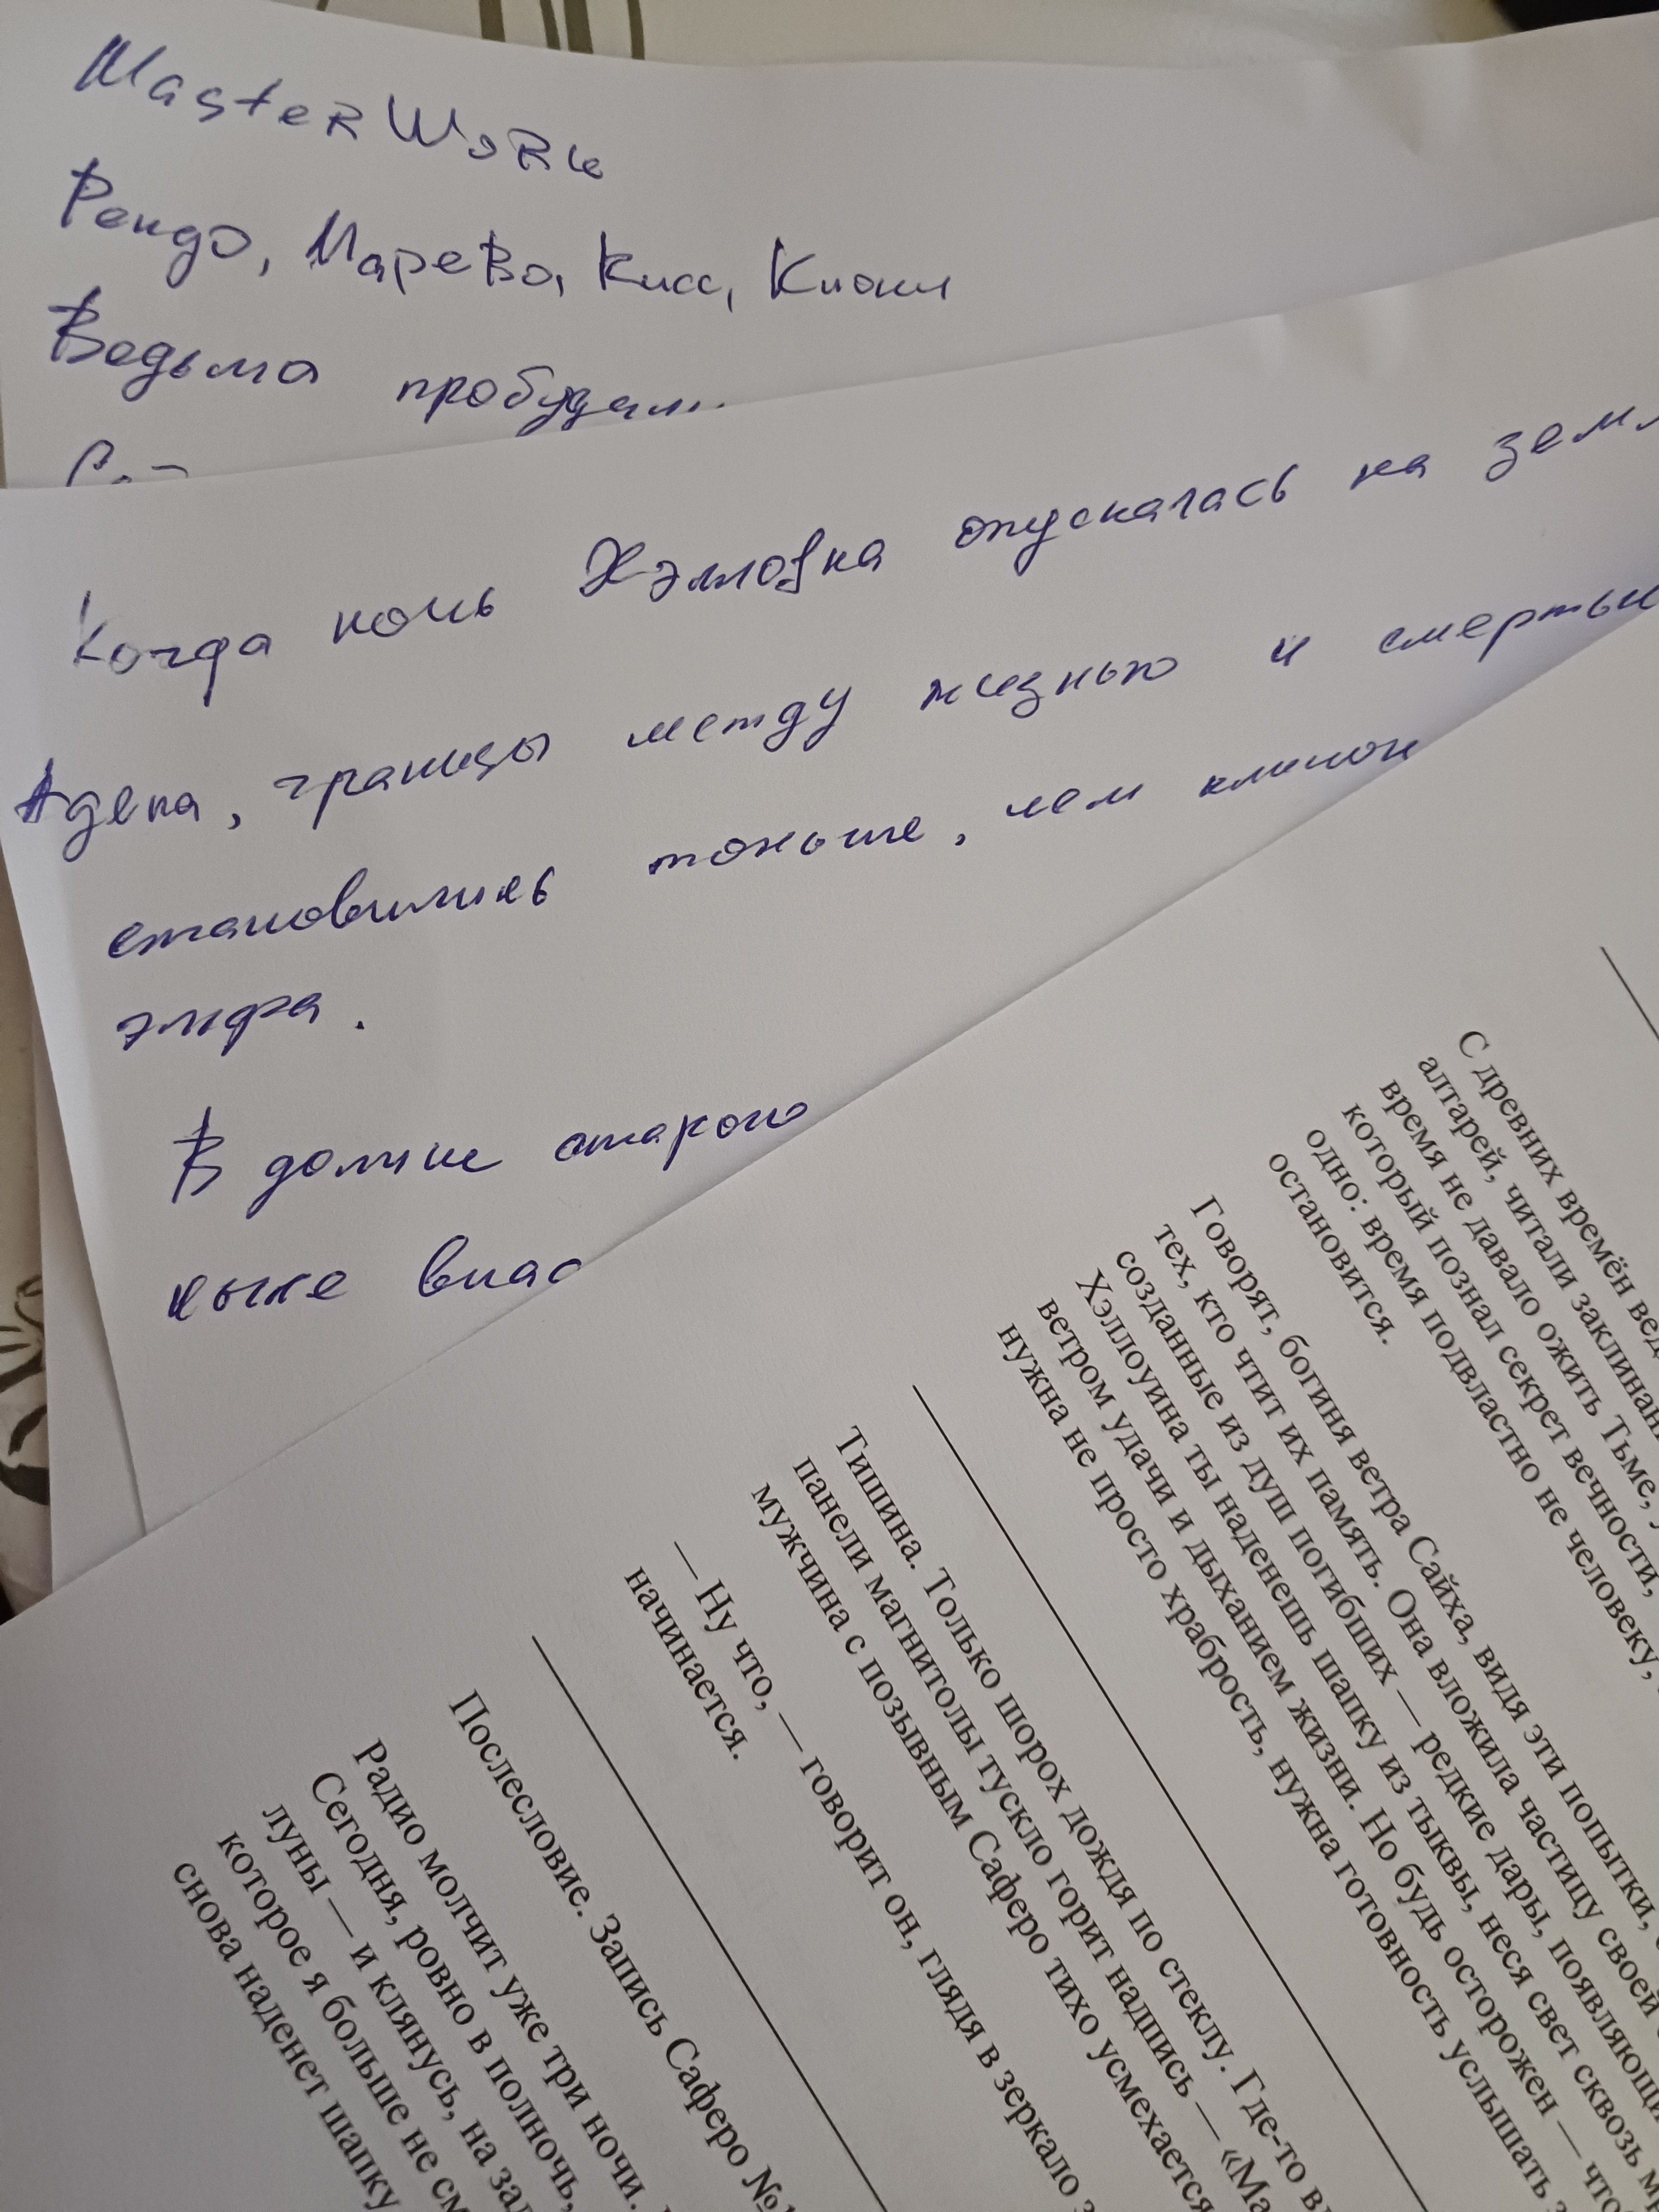 MasterWork
Рендо, Марево, Кисс, Кионн
Ведьма
Когда ночь Хэллоуна опускалась на
Адена, границы между жизнью и
становились тоньше, чем клинок
эльфа.
В долине старого
ныне
С древних времён
алтарей, читали
время не давало ожить Тьме,
который познал секрет вечности,
одно: время подвластно не человеку,
остановится.
Говорят, богиня ветра Сайха, видя эти попытки,
тех, кто чтит их память. Она вложила частицу своей
созданные из душ погибших — редкие дары,
Хэллоуина ты наденешь шапку из тыквы, неся свет сквозь
ветром удачи и дыханием жизни. Но будь осторожен —
нужна не просто храбрость, нужна готовность услышать
Тишина. Только шорох дождя по стеклу. Где-то
панели магнитолы тускло горит надпись —
мужчина с позывным Саферо тихо усмехается
— Ну что, — говорит он, глядя в зеркало
начинается.
Послесловие. Запись Саферо
Радио молчит уже три ночи.
Сегодня, ровно в полночь,
луны — и клянусь, на
которое я больше не
снова наденет шапку